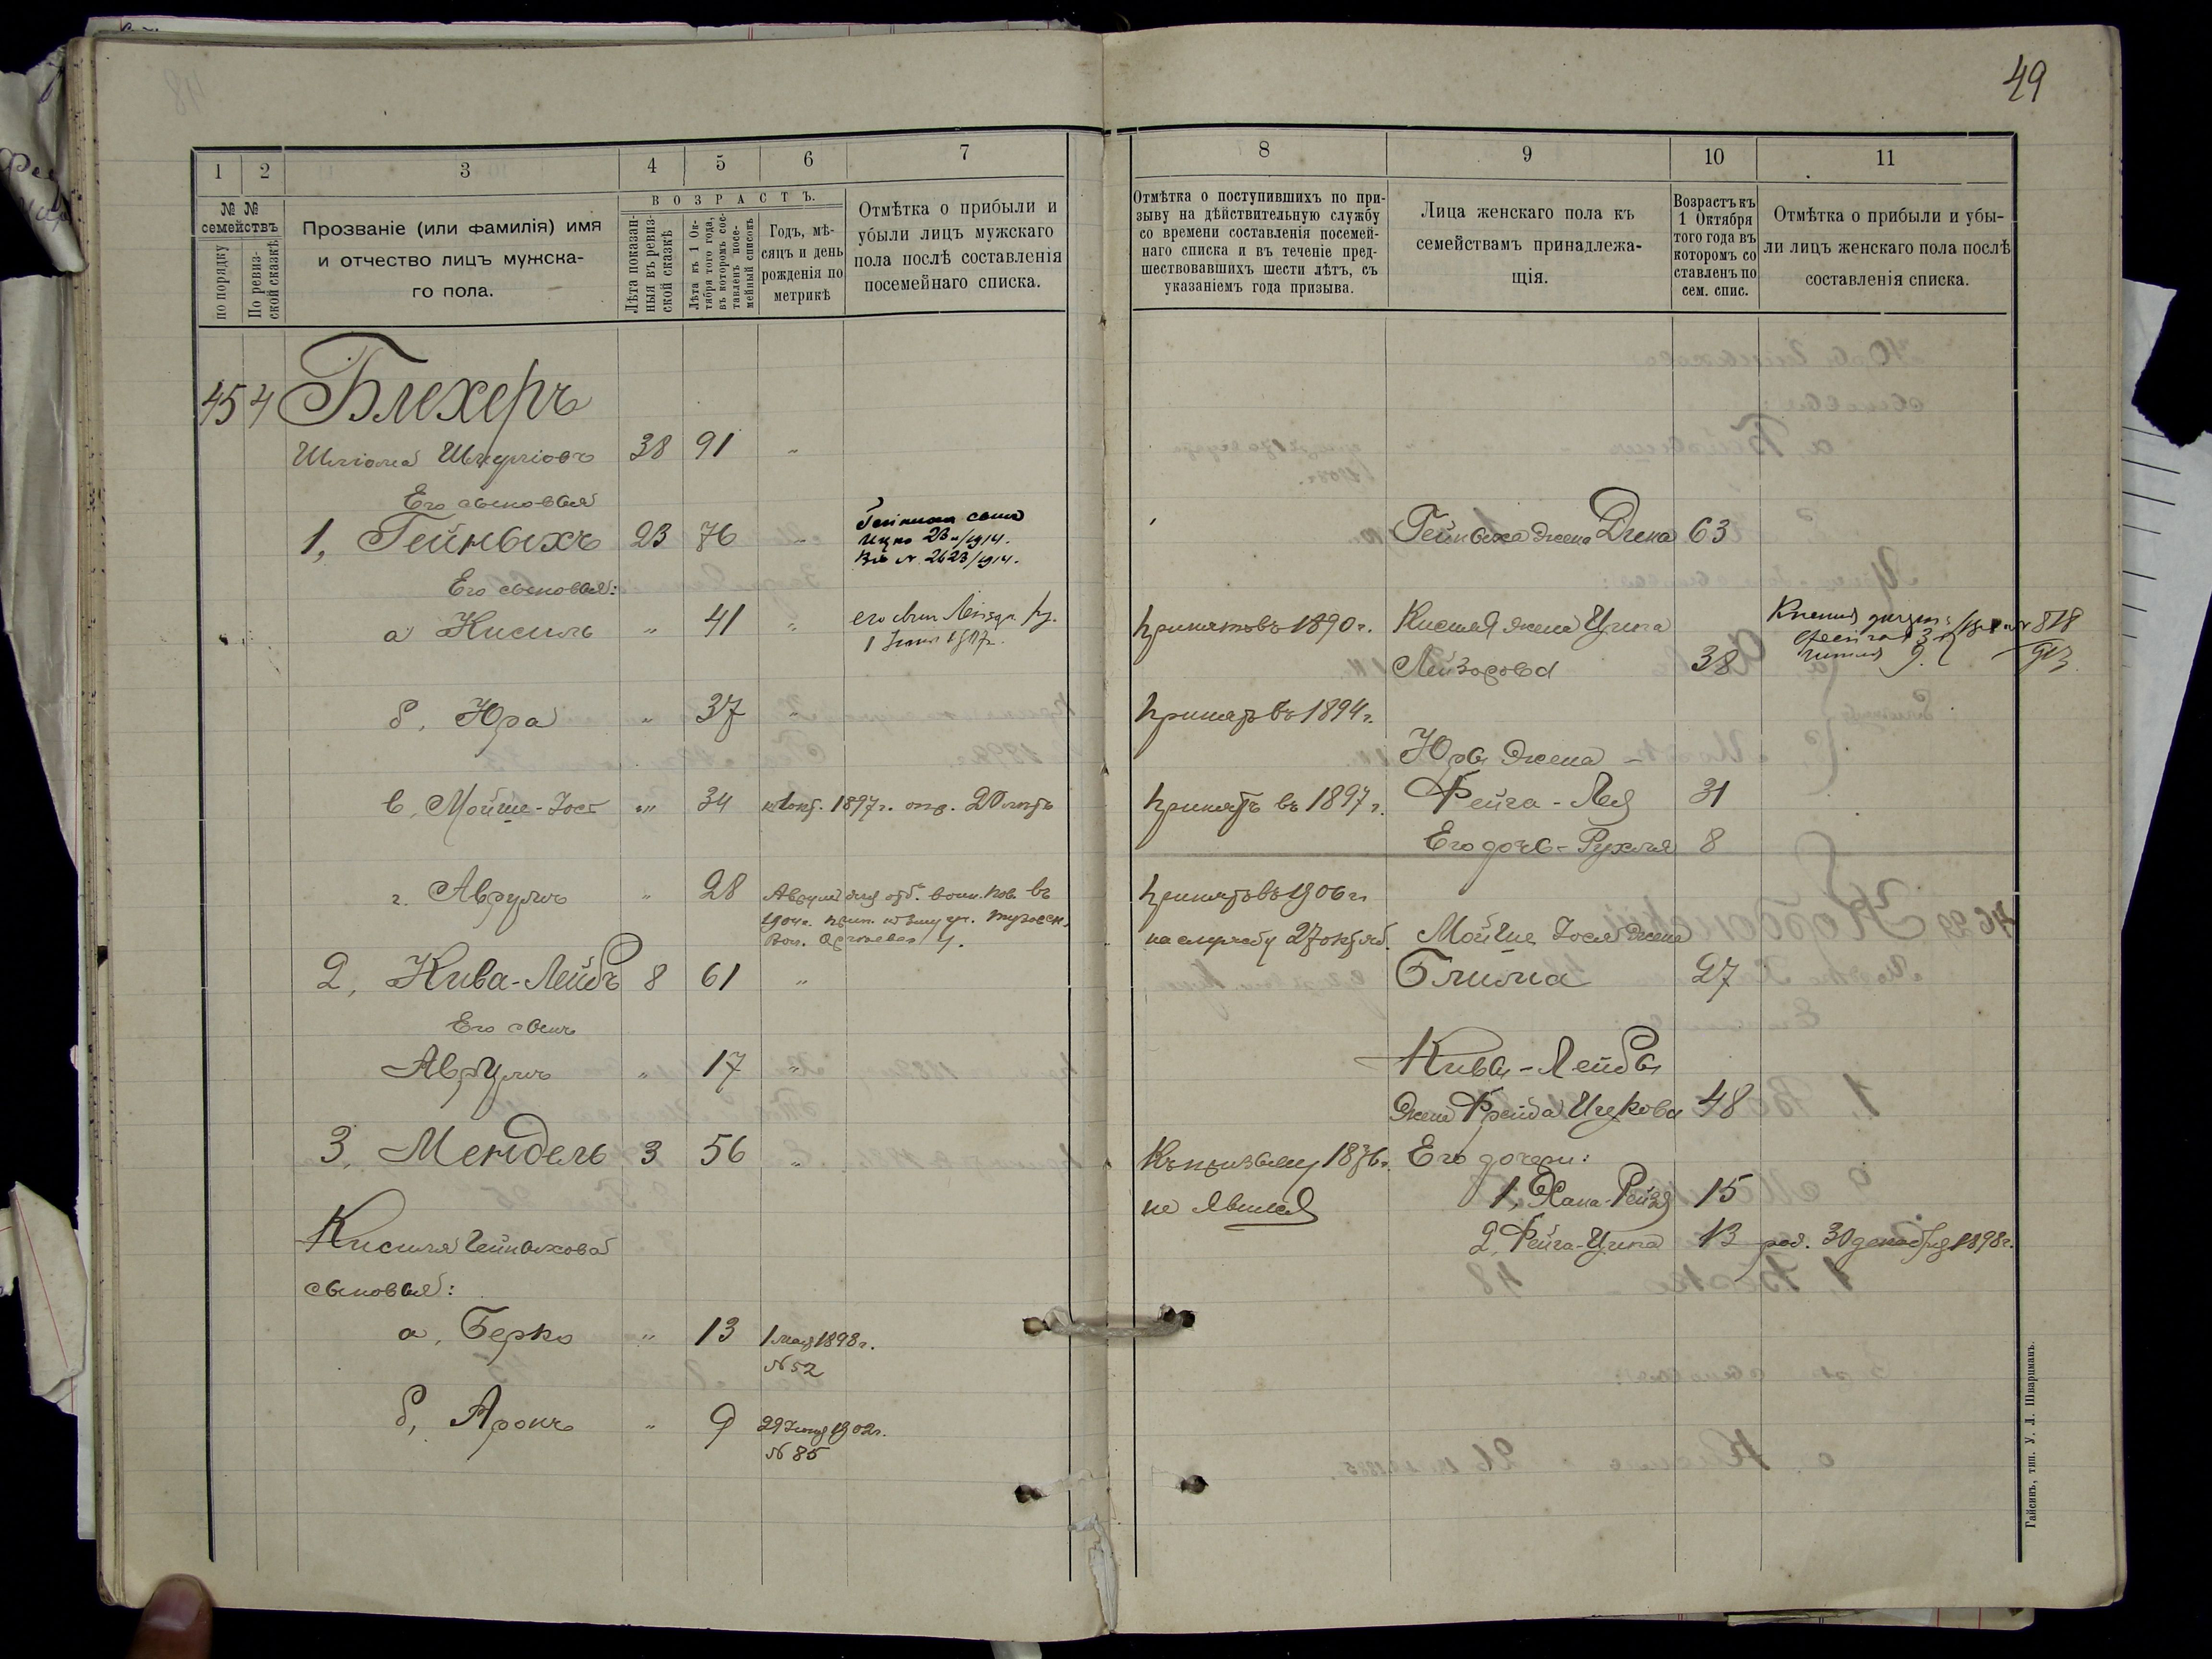 49
1
2
3
4
5
6
7
№ №
семействъ
по порядку
По ревиз-
ской сказкѣ
Прозваніе (или фамилія) имя
и отчество лицъ мужска-
го пола.
ВОЗРАСТЪ.
Лѣта показан-
ныя въ ревиз-
ской сказкѣ
Лѣта къ 1 Ок-
тября того года,
въ которомъ сос-
тавленъ посе-
мейный списокъ
Годъ, мѣ-
сяцъ и день
рожденія по
метрикѣ
Отмѣтка о прибыли и
убыли лицъ мужскаго
пола послѣ составленія
посемейнаго списка.
45 4 Блехеръ
Шліома 38 91 "
Его сыновья
1, Гейныхъ 23 76 "
23 /1914.
№ 2623/1914.
Его сыновья:
а Кисиль " 41 "
его сынъ
1 1917г.
б, Юра " 37 "
в, Мойше-Іось " 34 1897г. опр. 20 лѣтъ
г. Аврумъ " 28 Аврумъ для отб. воин. пов. въ
1904г.
2, Кива-Лейбъ 8 61 "
Его сынъ
Аврумъ " 17 "
3, Мендель 3 56 "
Кисиля Гейныхова
сыновья:
а, Берко " 13 1 мая 1898г.
№ 52
б, Аронъ " 9 29 1902г.
№ 85
8
9
10
11
Отмѣтка о поступившихъ по при-
зыву на дѣйствительную службу
со времени составленія посемей-
наго списка и въ теченіе пред-
шествовавшихъ шести лѣтъ, съ
указаніемъ года призыва.
Лица женскаго пола къ
семействамъ принадлежа-
щія.
Возрастъ къ
1 Октября
того года въ
которомъ со
ставленъ по
сем. спис.
Отмѣтка о прибыли и убы-
ли лицъ женскаго пола послѣ
составленія списка.
Гейныха жена 63
Принятъ въ 1890г. Кисиля жена Ципа
Лейзорова 38
818
913
Принятъ въ 1894г.
Юры жена -
Принятъ въ 1897г. Фейга-Лея 31
Его дочь-Рухля 8
Принятъ въ 1906г.
на службу 27 октяб. Мойше Іося жена
Блима 27
Кивы-Лейбы
жена Фрейда Ицкова 48
Къ призыву 1876г. Его дочери:
не явился
1, Хана-Рейзя 15
2, Фейга-Ципа 13 род. 30 декабря 1898г.
Гайсинъ, тип. У. Л. Шварцманъ.